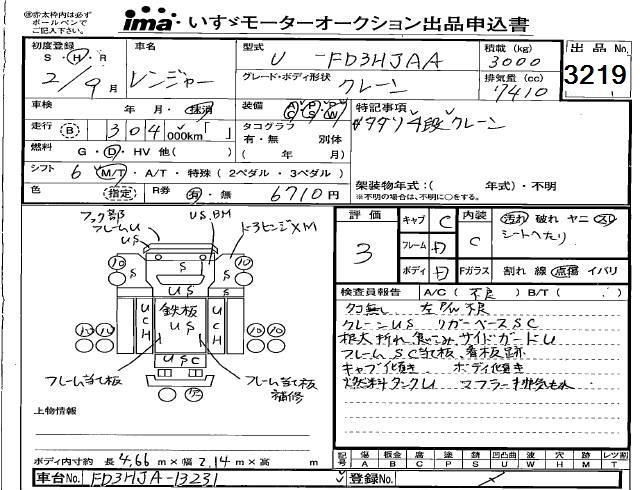 ㊟赤太枠内は必ず
ボールペンで
ご記入下さい。
ima・いすゞモーターオークション出品申込書
初度登録
S・H・R
2/9月
車名
レンジャー
型式
U-FD3HJAA
グレード・ボディ形状
クレーン
積載(kg)
3000
排気量(cc)
7410
出品No.
3219
車検
年 月・抹消
装備
A/C P/S P/W
特記事項
タダノ4段クレーン
走行
B
304,000km「 」
タコグラフ
有・無 別体
( 年 月)
燃料
G・D・HV 他( )
シフト
6 M/T・A/T・特殊(2ペダル・3ペダル)
架装物年式:( 年式)・不明
※不明の場合は、不明に○をする。
色
指定
R券
有・無
6710円
フック部
フレームU
US
US.BM
ドアヒンジXM
S
S
S
US
10
10
UCH
鉄板
US
UCH
10
10
US C
フレーム当て板
フレーム当て板
補修
ア
上物情報
ボディ内寸約 長4.66m×幅2.14m×高 m
車台No.
FD3HJA-13231
登録No.
評価
3
キャブ
C
フレーム
D
ボディ
D
内装
C
Fガラス
汚れ 破れ ヤニ スレ
シートへたり
割れ 線 点傷 イバリ
検査員報告
A/C(不良) B/T( )
タコ無し 左P/W不良
クレーンUS リヤゲートベースSC
サイドガードU
フレームSC当て板、看板跡
キャブ傾き ボディ傾き
燃料タンクU マフラー排気もれ
記号
傷 A
板金 B
腐 C
塗 P
錆 S
凹凸曲 U
波 W
穴 H
跡 M
レツ割 T